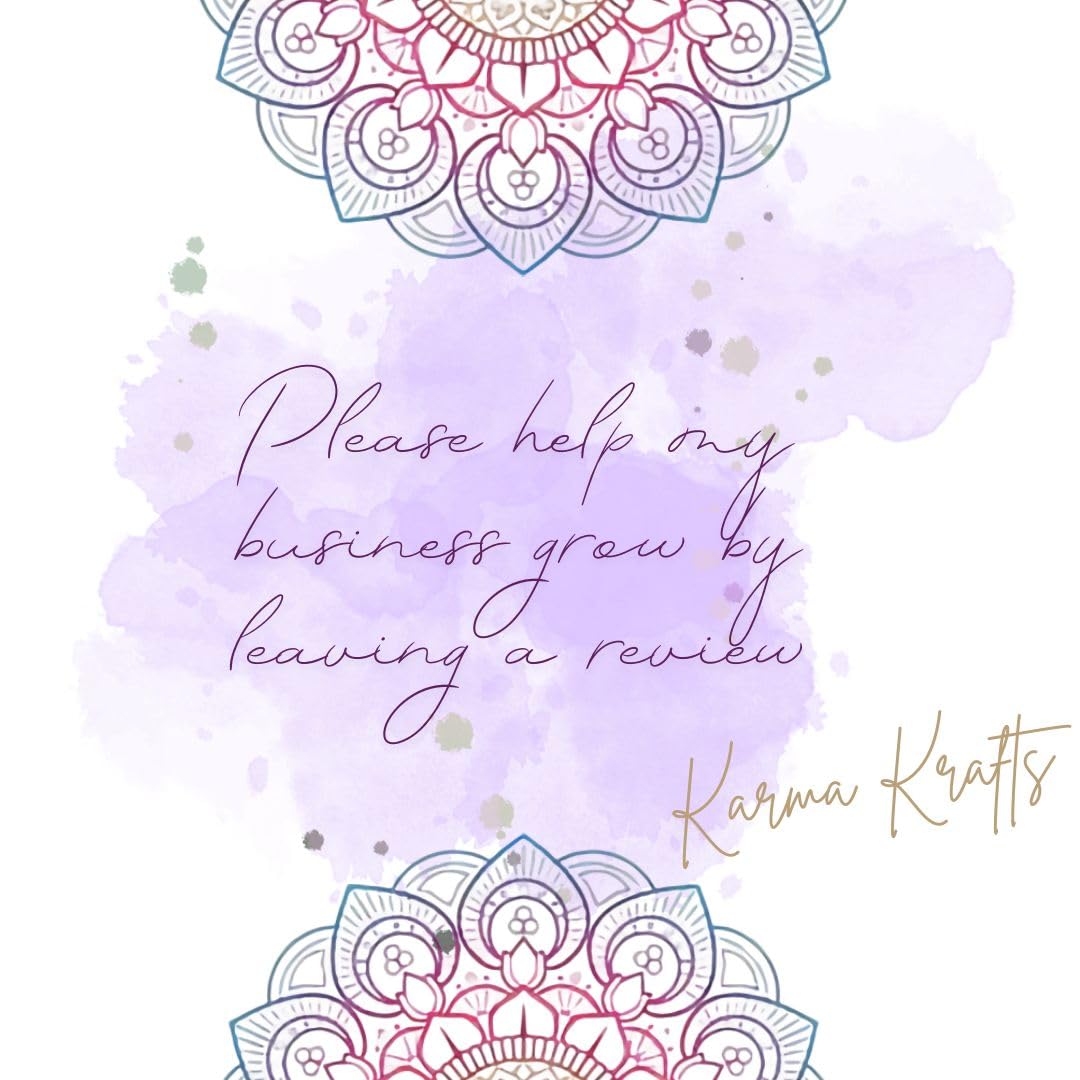 Please help my
business grow by
leaving a review
Karma Krafts